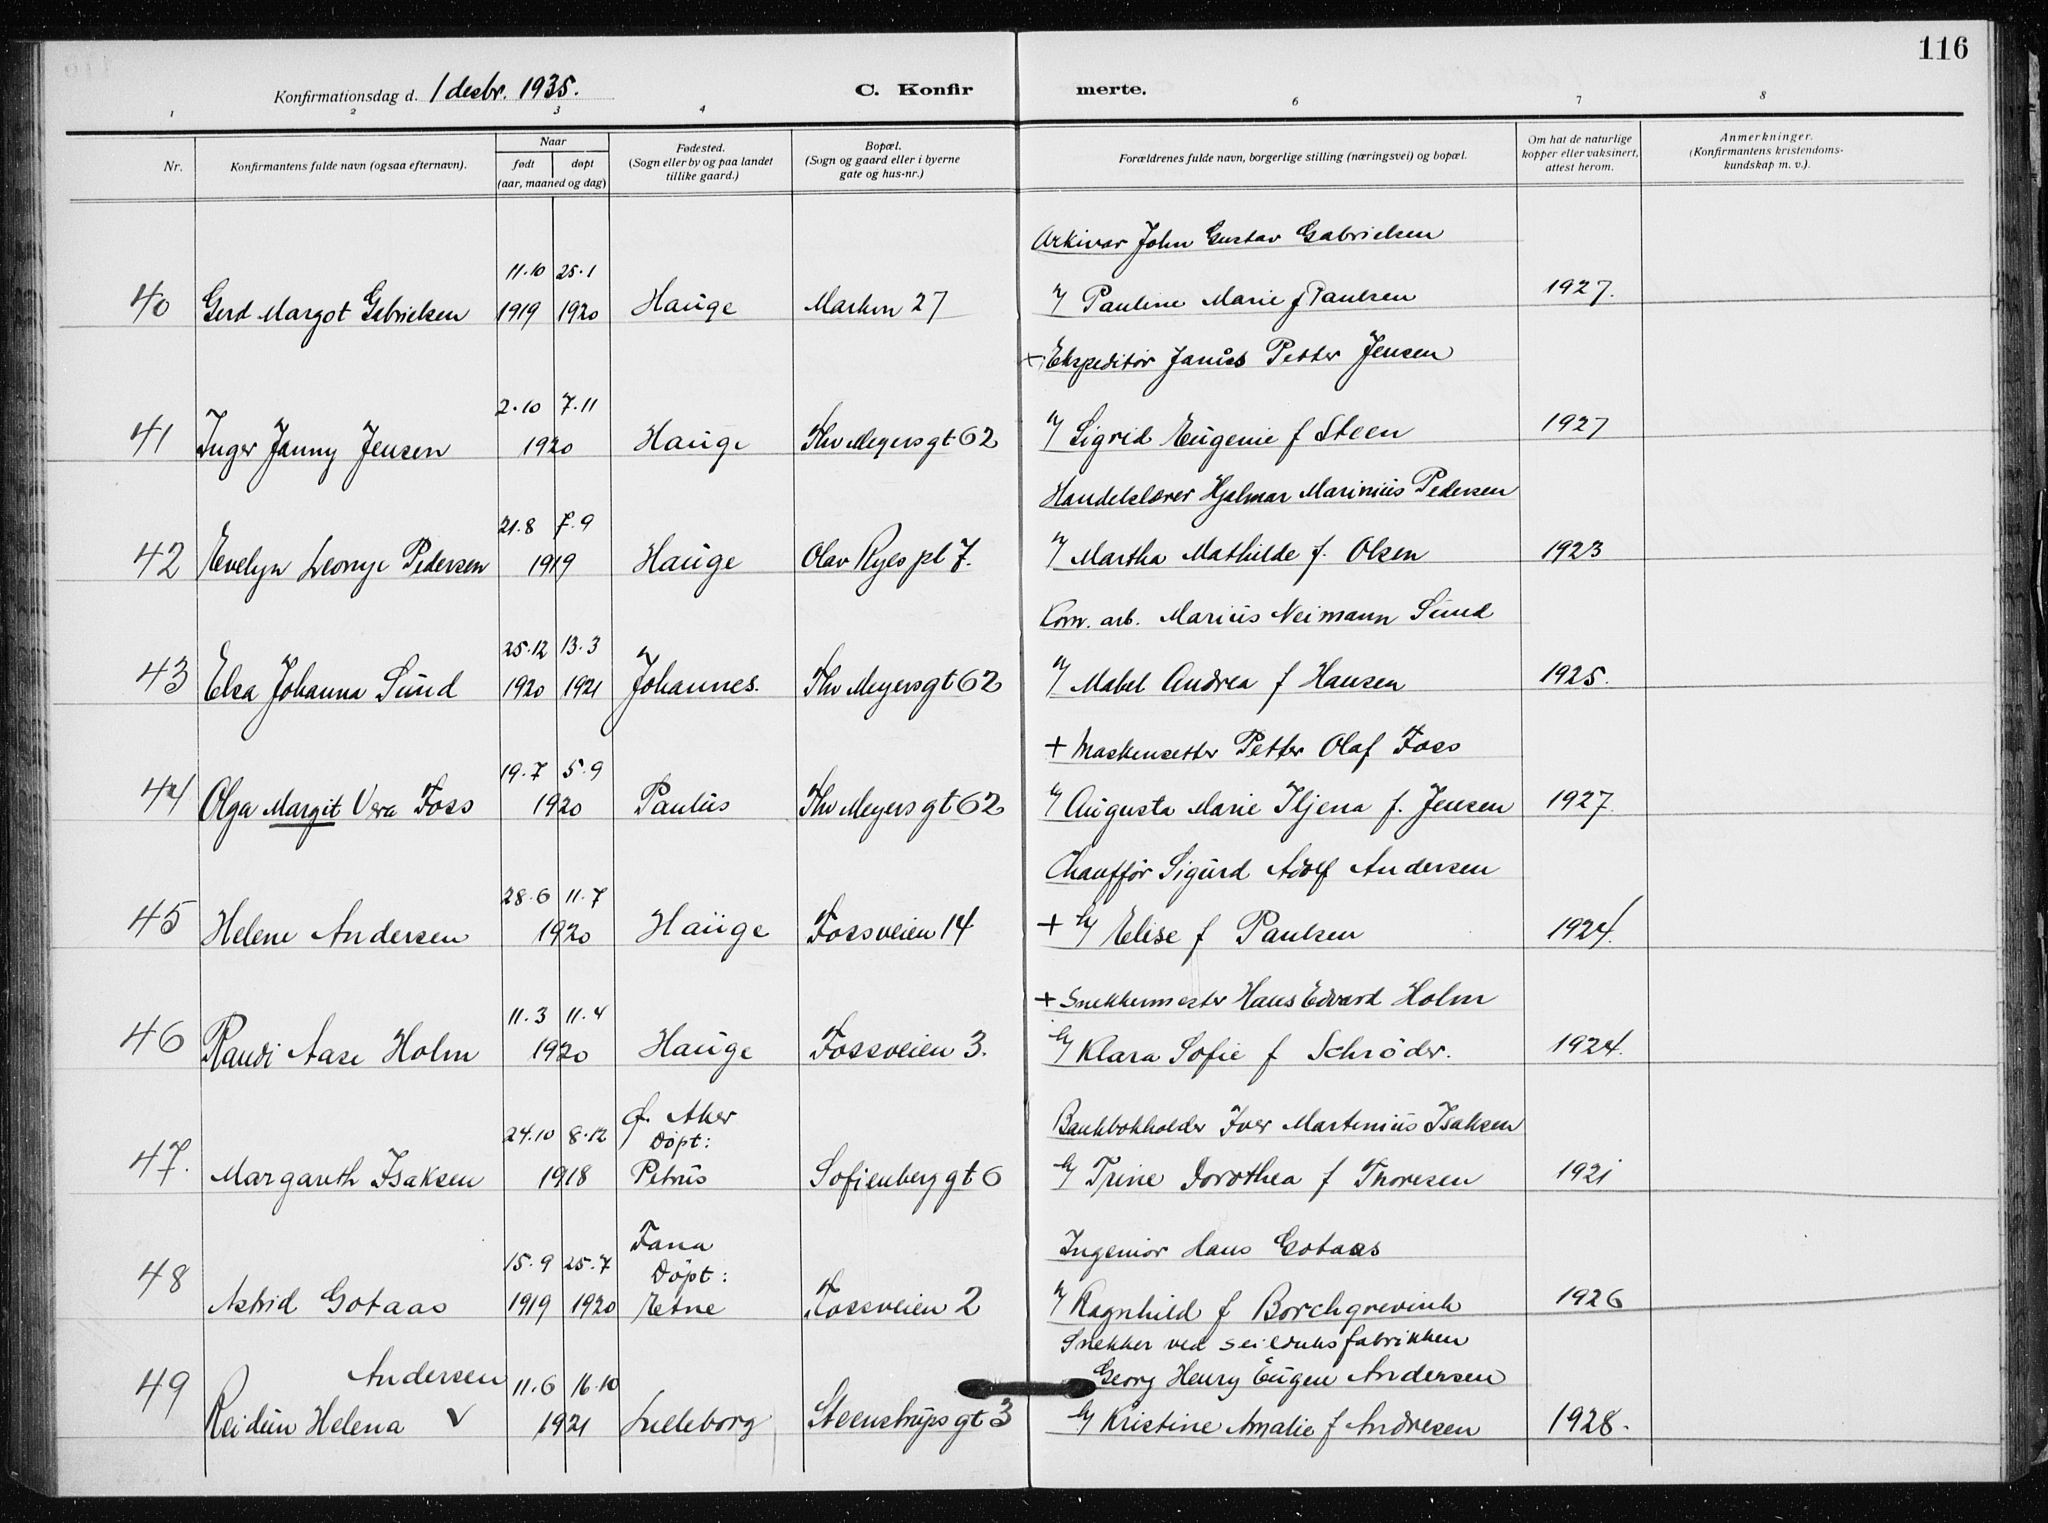 116
Konfirmationsdag d. 1 desbr. 1935.
C. Konfirmerte.
1 2 3 4 5 6 7 8
Nr.
Konfirmantens fulde navn (ogsaa efternavn).
Naar
født døpt
(aar, maaned og dag)
Fødested.
(Sogn eller by og paa landet
tillike gaard.)
Bopæl.
(Sogn og gaard eller i byerne
gate og hus-nr.)
Forældrenes fulde navn, borgerlige stilling (næringsvei) og bopæl.
Om hat de naturlige
kopper eller vaksinert,
attest herom.
Anmerkninger.
(Konfirmantens kristendoms-
kundskap m. v.).
Arkivar John Gustav Gabrielsen
11.10 25.1
40 Gerd Margot Gabrielsen 1919 1920 Hauge Markvn 27 o/ Pauline Marie f Paulsen 1927.
+ Ekspeditør Janius Petter Jensen
2.10 7.11
41 Inger Janny Jensen 1920 Hauge Thv Meyersgt 62 o/ Sigrid Eugenie f Steen 1927
Handelslærer Hjalmar Marinius Pedersen
21.8 7.9
42 Evelyn Leonye Pedersen 1919 Hauge Olav Ryes pl 7. o/ Martha Mathilde f. Olsen 1923
Kom. arb. Marius Neimann Sund
25.12 13.3
43 Elsa Johanna Sund 1920 1921 Johannes. Thv Meyersgt 62 o/ Mabel Andrea f Hansen 1925.
+ Maskinsetter Petter Olaf Foss
19.7 5.9
44 Olga Margit Vera Foss 1920 Paulus Thv Meyersgt 62 o/ Augusta Marie Iljena f. Jensen 1927.
Chauffør Sigurd Adolf Andersen
28.6 11.7
45 Helene Andersen 1920 Hauge Fossveien 14 + o/ Elise f Paulsen 1924.
+ Snekkermester Hans Edvard Holm
11.3 11.4
46 Randi Aase Holm 1920 Hauge Fossveien 3. o/ Klara Sofie f Schrøder. 1924.
Ø. Aker
Bankbokholder Iver Martinius Isaksen
24.10 8.12 Døpt:
47. Margareth Isaksen 1918 Petrus Sofienberggt 6 o/ Trine Dorothea f Thoresen 1921
Fana
Ingeniør Hans Gotaas
15.9 25.7 Døpt:
48 Astrid Gotaas 1919 1920 Etne Fossveien 2 o/ Ragnhild f Borchgrevink 1926
Snekker ved seilduksfabrikken
Andersen 11.6 16.10 Georg Henry Eugen Andersen
49 Reidun Helena V 1921 Lilleborg Steenstrupsgt 3 o/ Kristine Amalie f Andresen 1928.